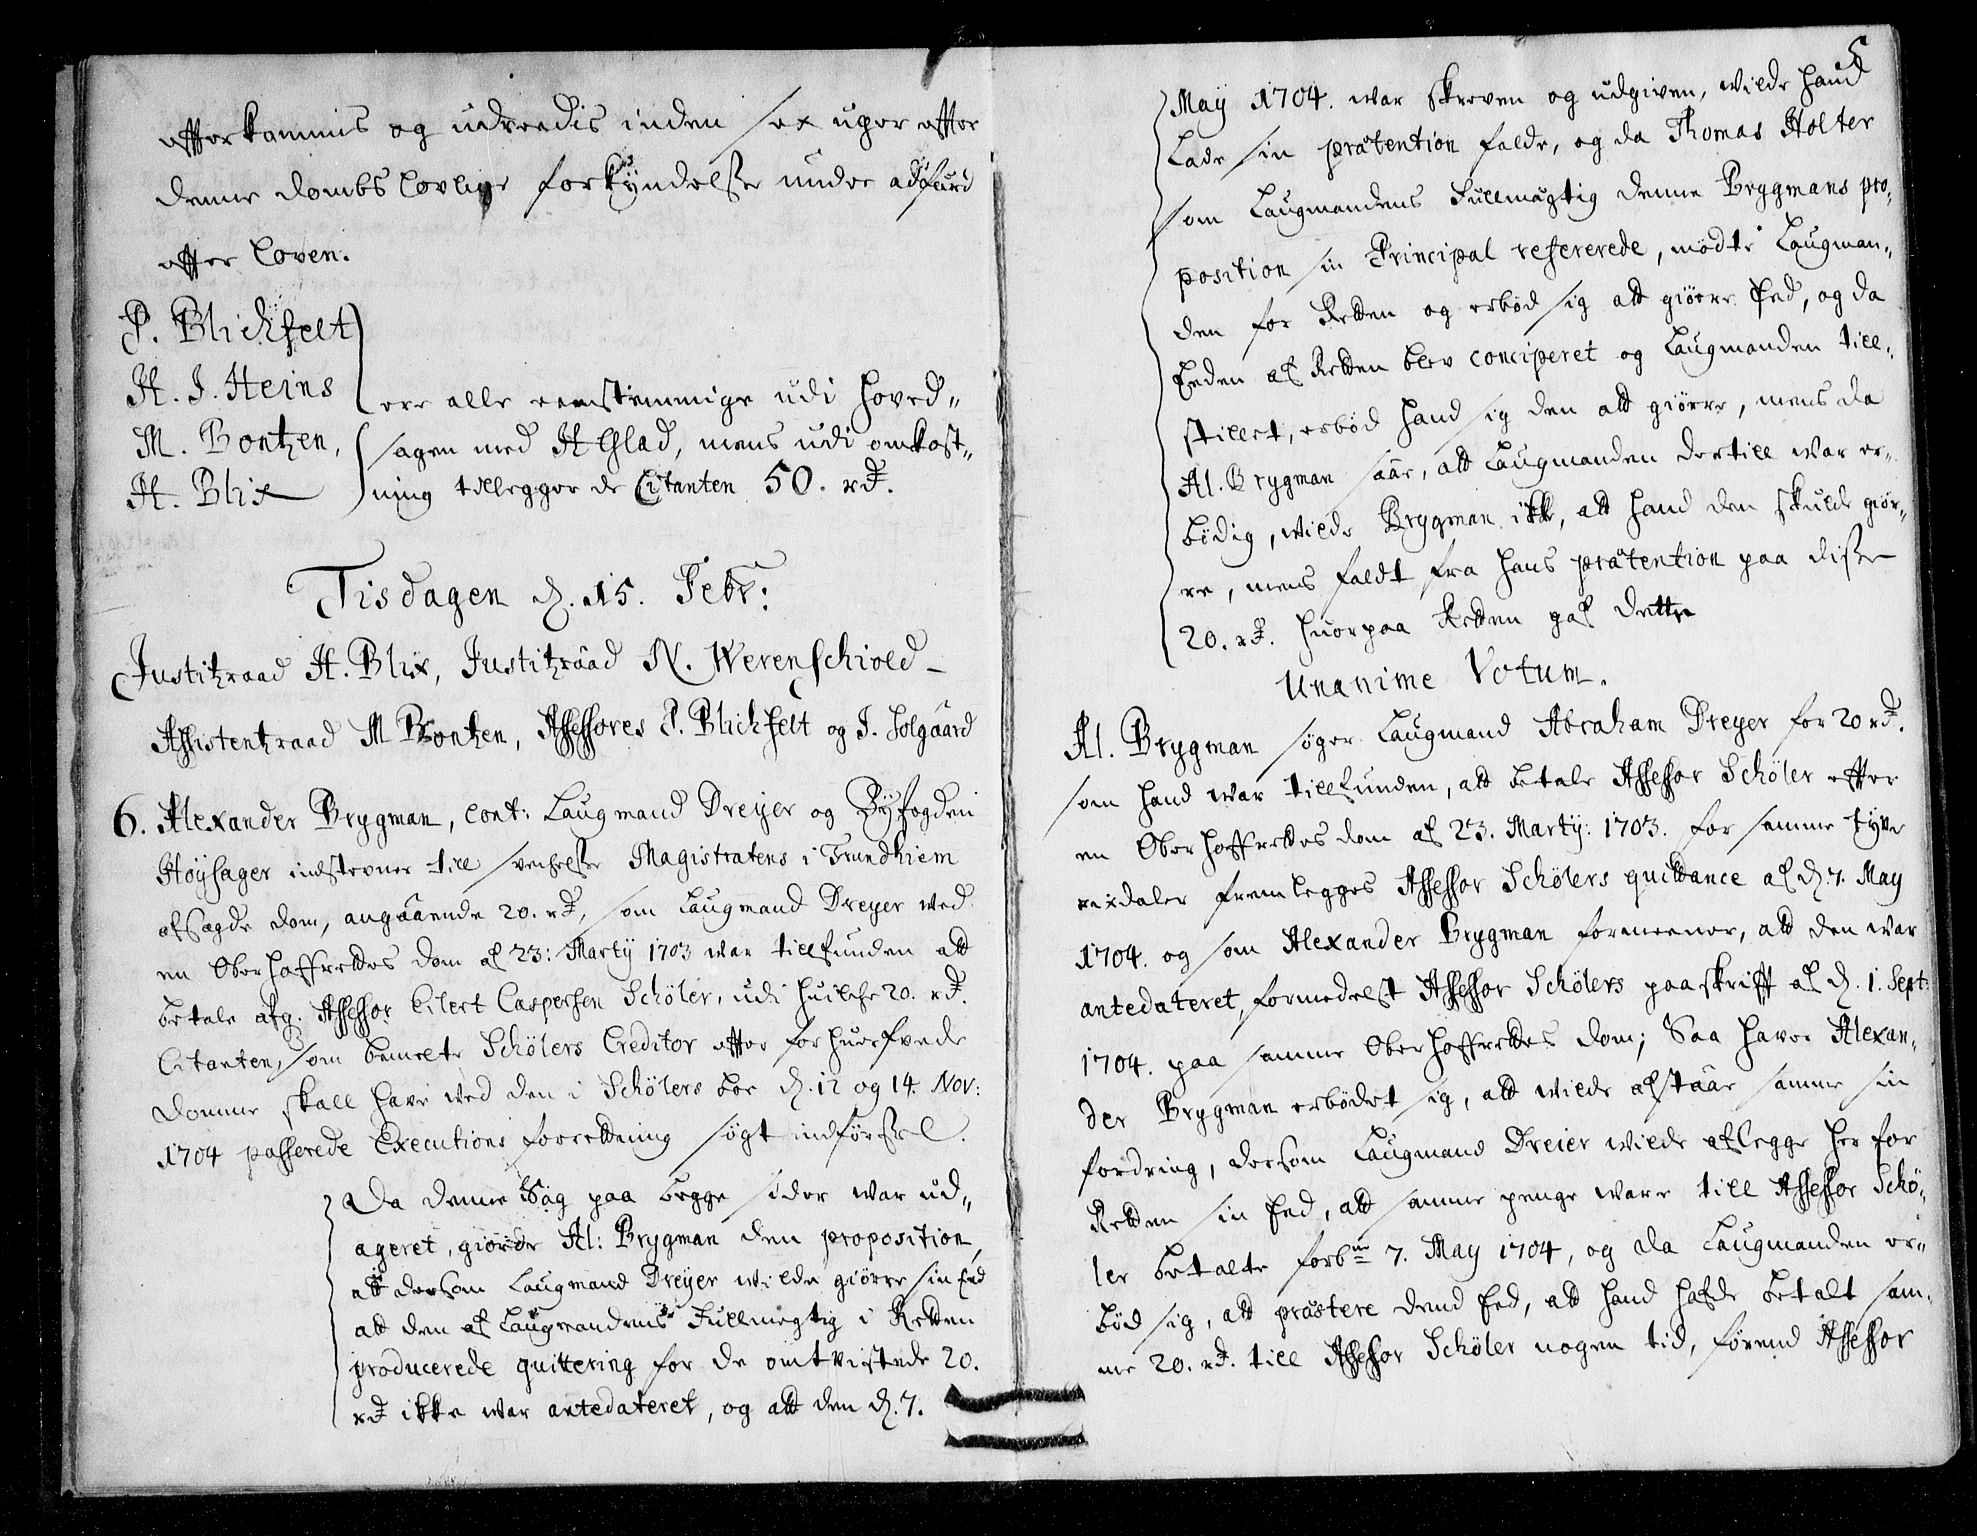 efterkommis og udreedis inden sex uger efter
denne dombs lovlige forkyndelse under adfærd
efter Loven.
P. Blichfelt
H. J. Heins
ere alle eenstemmige udi hoved-
M. Bontzen,
sagen med Hesblad, mens udi omkost-
H. Blix
ning tillegger de Citanten 50. rd.
Tisdagen d. 15. Febr:
Justitzraad H. Blix, Justitzraad N. Werenschiold
Assistentzraad M Bontzen, Assessores P. Blichfelt og J. Solgaard
6. Alexander Brygman, cont: Laugmand Dreyer og Byfogden
Høysager indstevner till svechelse Magistratens i Trundhiem
afsagde dom, angaaende 20. rd, som Laugmand Dreyer ved
en Oberhoffrettes dom af 23: Marty 1703 war tillfunden att
betale afg. Assessor Eilert Caspersen Schøler, udi huilche 20. rd.
Citanten, som bemelte Schølers Creditor efter forhuerfvede
Domme skall have ved den i Schølers boe d. 12 og 14. Nov:
1704 passerede Executions forrettning søgt indførsel.
Da denne Sag paa begge sider war ud-
ageret, giorde Al: Brygman den proposition,
att dersom Laugmand Dreyer wilde giørre sin Eed
att den af Laugmandens Fullmegtig i Retten
producerede quittering for de omtvistede 20.
rd ikke war antedateret, og att den d. 7.
5
May 1704. war skreven og udgiven, wilde hand
lade sin prætention falde, og da Thomas Holter
som Laugmandens Fullmægtig denne Brygmans pro-
position sin Principal refererede, mødte Laugman-
den for Retten og erbød sig att giørre Eed, og da
Eeden af Retten blev conciperet og Laugmanden till-
stillet, erbød hand sig den att giørre, mens da
Al. Brygman saae, att Laugmanden dertill war er-
bødig, wilde Brygman ikke, att hand den skulde giør-
re, mens faldt fra hans prætention paa disse
20. rd. huorpaa Retten gaf dette
Unanime Votum.
Al. Brygman søger Laugmand Abraham Dreyer for 20 rd.
som hand war tillfunden, att betale Assessor Schøler efter
en Oberhoffrettes dom af 23. Marty: 1703. for samme tyve
rixdaler fremlegges Assessor Schølers quittance af d. 7. May
1704. og som Alexander Brygman formeener, att den war
antedateret, formedelst Assessor Schølers paaskrifft af d. 1. Sept:
1704. paa samme Oberhoffrettes dom; Saa haver Alexan-
der Brygman erbødet sig, att wilde afstaae samme sin
fordring, dersom Laugmand Dreier wilde aflegge her for
Retten sin Eed, att samme penge ware till Assessor Schø-
ler betalte forbte 7. May 1704, og da Laugmanden er-
bød sig, att præstere dend Eed, att hand hafde betalt sam-
me 20. rd. till Assessor Schøler nogen tid, førend Assessor